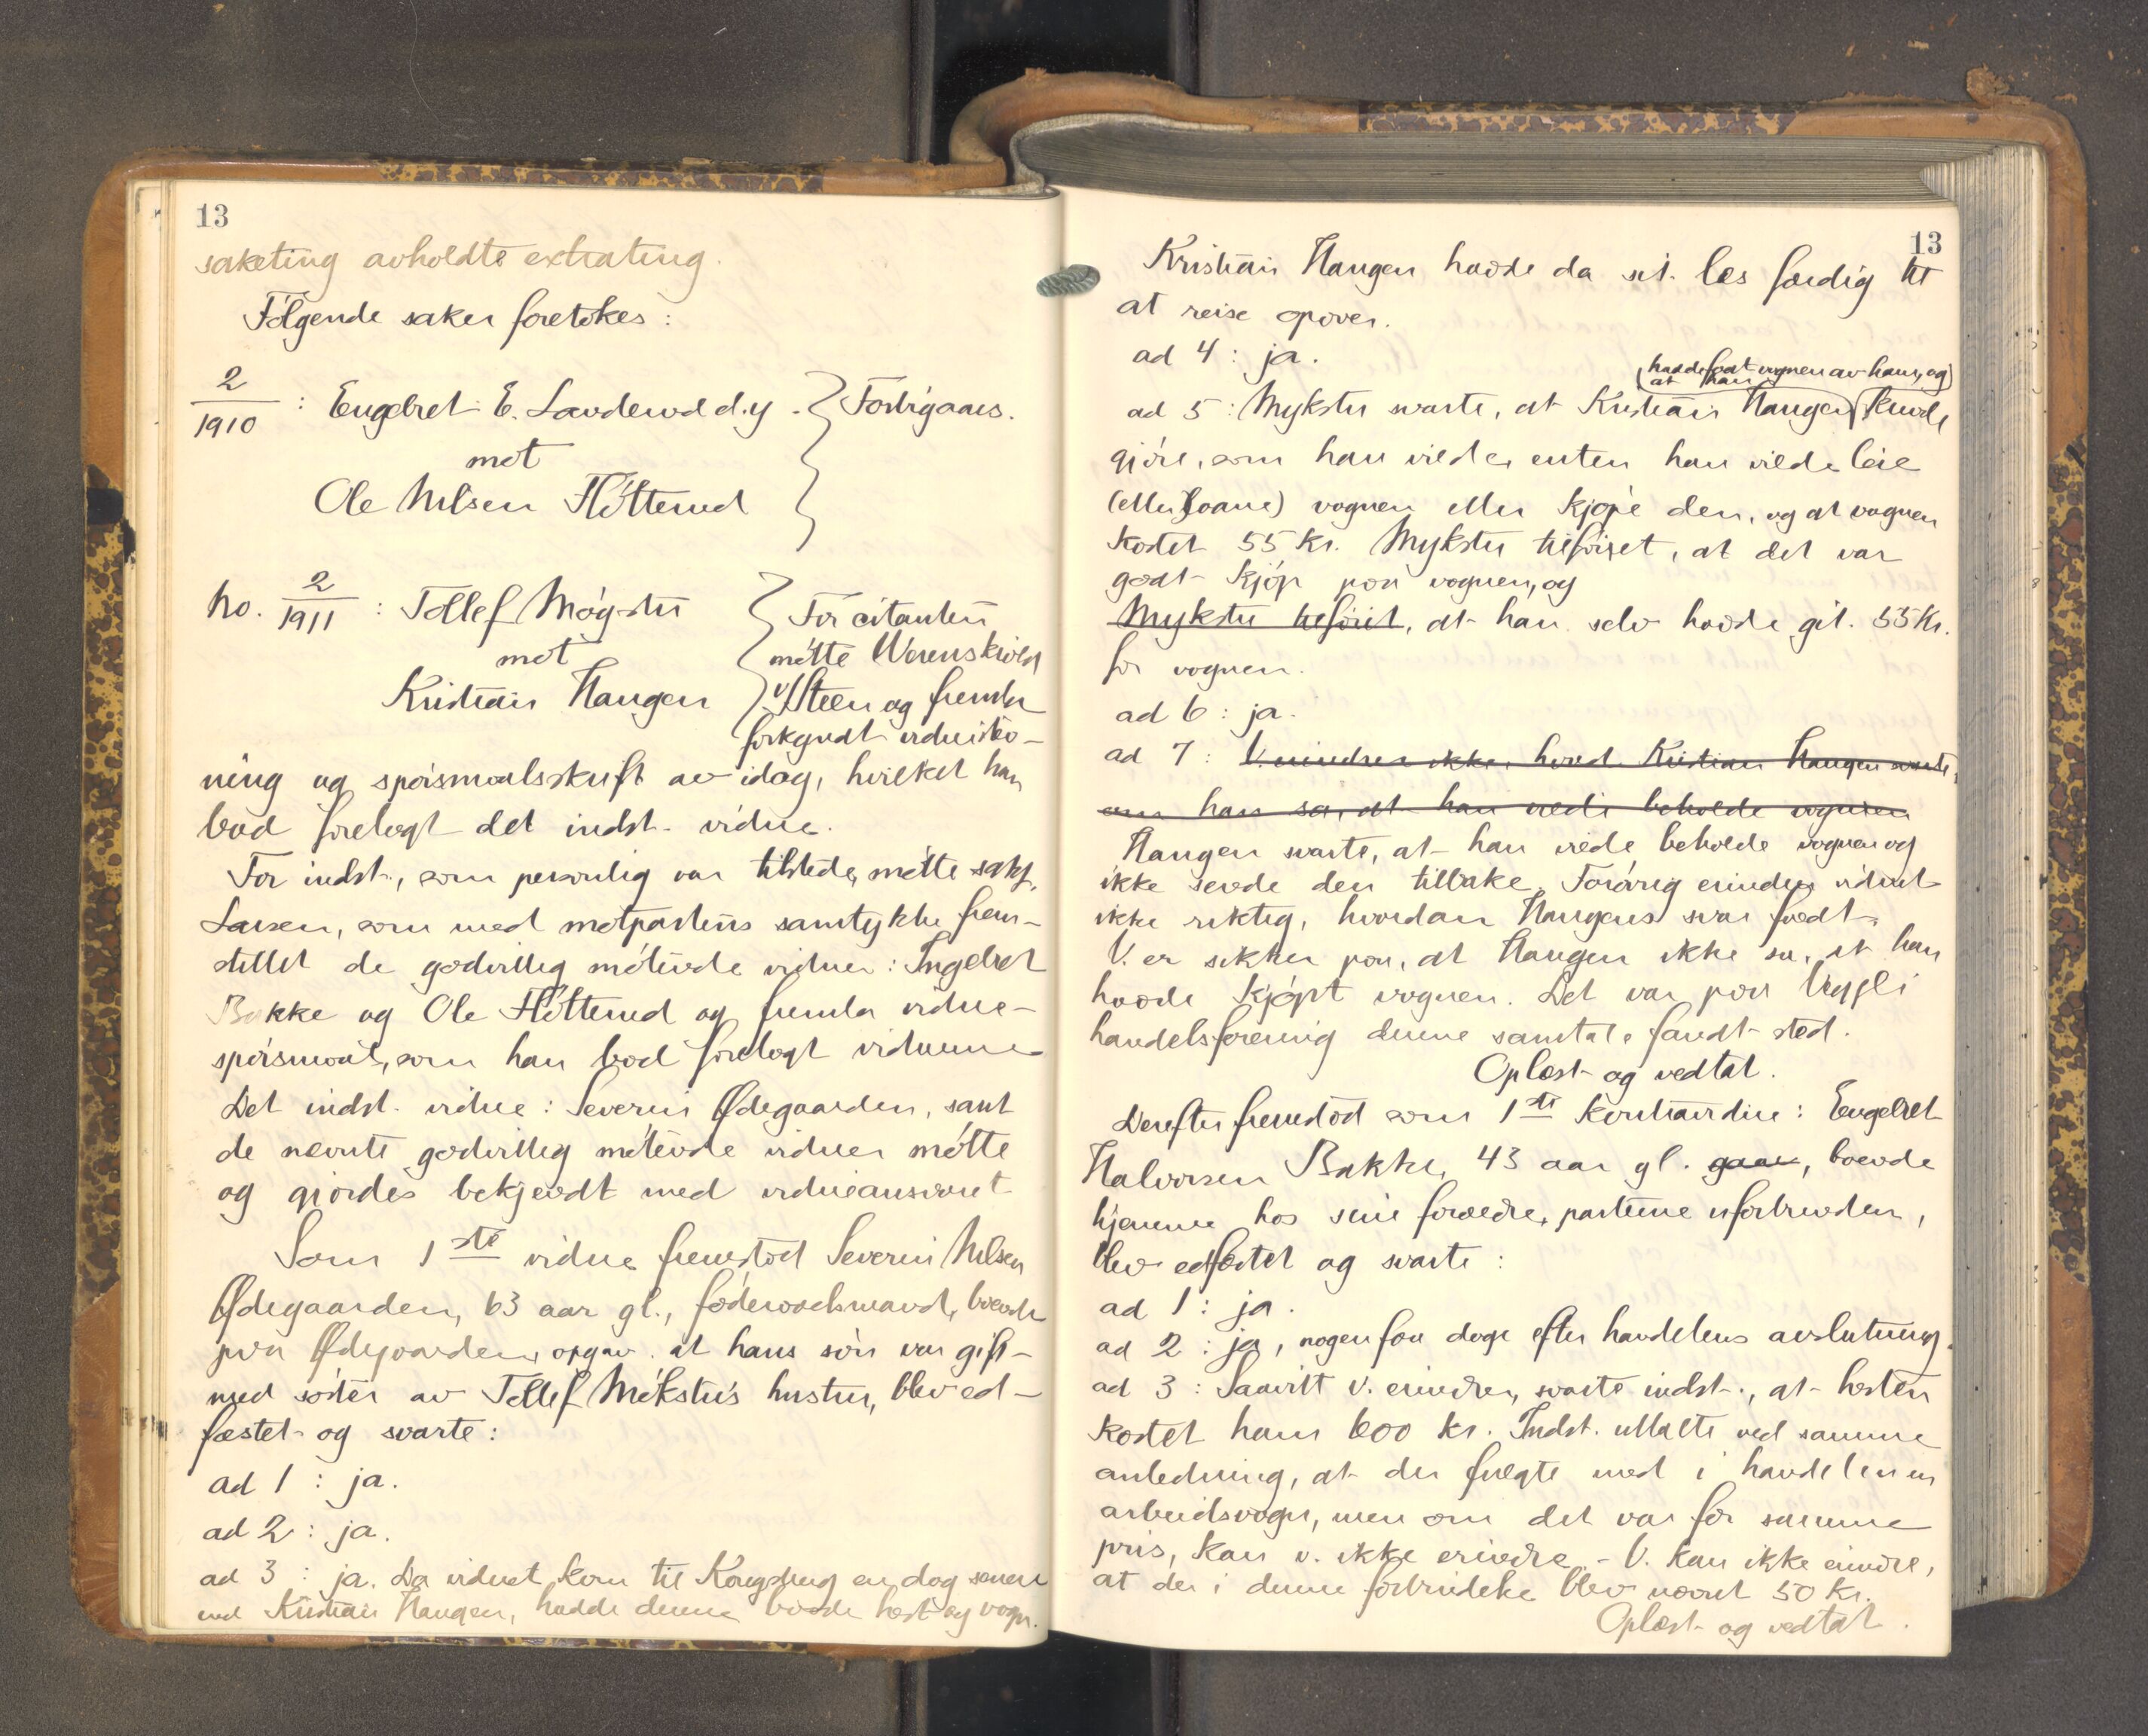 13
saketing avholdte extrating.
Følgende saker foretokes:
2/1910 : Engebret E. Landerud d.y. } Forbigaaes.
mot
Ole Nilsen Fløtterud
No. 2/1911 : Tollef Møgster } For citanten
mot } møtte Werenskiold
Kristian Haugen } v/ Steen og fremla
forkyndt vidnestev-
ning og spørsmaalsskrift av idag, hvilket han
bad forelagt det indst. vidne.
For indst., som personlig var tilstede, møtte sakf.
Larsen, som med motpartens samtykke frem-
stillet de godvillig møtende vidner: Ingebret
Bakke og Ole Fløtterud og fremla vidne-
spørsmaal, som han bad forelagt vidnerne
Det indst. vidne: Severin Ødegaarden, samt
de nævnte godvillig møtende vidner møtte
og gjordes bekjendt med vidneansvaret
Som 1ste vidne fremstod Severin Nilsen
Ødegaarden, 63 aar gl., føderaadsmand, boende
paa Ødegaarden, opgav at hans søn var gift
med søster av Tollef Møksters hustru, blev ed-
fæstet og svarte:
ad 1 : ja.
ad 2 : ja.
ad 3 : ja. Da vidnet kom til Kongsberg en dag senere
end Kristian Haugen, hadde denne baade hest og vogn.
13
Kristian Haugen havde da sit læs færdig til
at reise opover.
ad 4 : ja.
(hadde faat vognen av ham, og)
at han
ad 5 : Mykster svarte, at Kristian Haugen kunde
gjøre, som han vilde, enten han vilde leie
(eller laane) vognen eller kjøpe den, og at vognen
kostet 55 kr. Mykster tilføiet, at det var
godt kjøp paa vognen, og
Mykster tilføiet, at han selv hadde git 55 kr.
for vognen.
ad 6 : ja.
ad 7 : V. mindes ikke, hvad Kristian Haugen svarte,
om han sa, at han vilde beholde vognen
Haugen svarte, at han vilde beholde vognen og
ikke sende den tilbake. Forøvrig erindrer vidnet
ikke riktig, hvordan Haugens svar faldt.
V. er sikker paa, at Haugen ikke sa, at han
havde kjøpt vognen. Det var paa Veggli
handelsforening denne samtale fandt sted.
Oplæst og vedtat.
Derefter fremstod som 1ste kontravidne: Engebret
Halvorsen Bakke, 43 aar gl. gaar, boende
hjemme hos sine forældre, parterne uforbunden,
blev edfæstet og svarte:
ad 1 : ja.
ad 2 : ja, nogen faa dage efter handelens avslutning.
ad 3 : Saavitt v. erindrer, svarte indst., at hesten
kostet ham 600 kr. Indst. uttalte ved samme
anledning, at der fulgte med i handelen en
arbeidsvogn, men om det var for samme
pris, kan v. ikke erindre. - V. kan ikke erindre,
at der i denne forbindelse blev nævnt 50 kr.
Oplæst og vedtat.